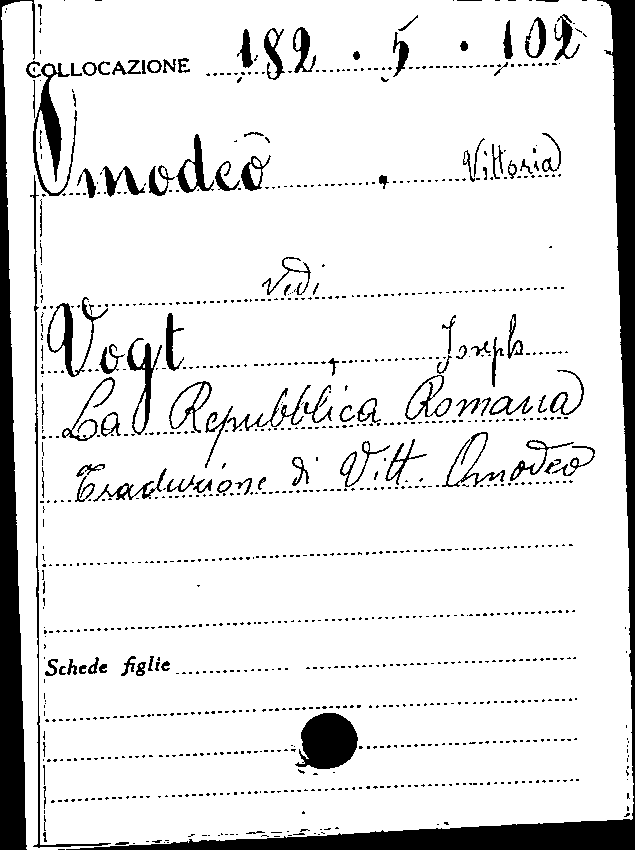 COLLOCAZIONE 182 . 5 . 102
Omodeo , Vittoria
vedi
Vogt , Joseph
La Repubblica Romana
Traduzione di Vitt. Omodeo
Schede figlie